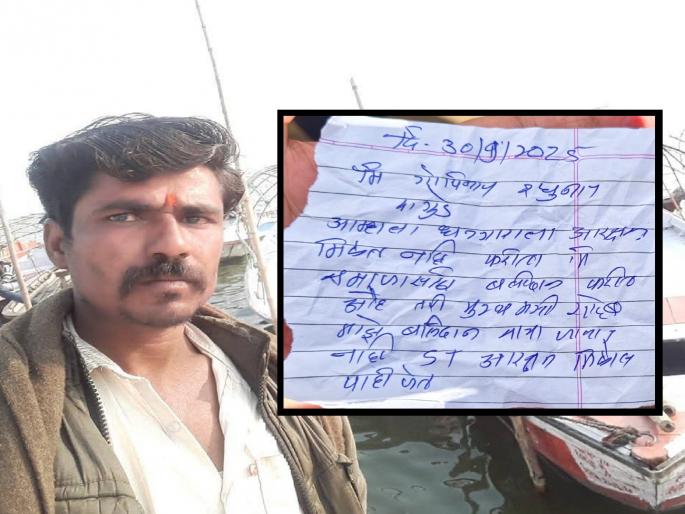 दि - 30/9/2025
मि गोपिनाथ रघुनाथ
आम्हाला धनगराला आरक्षण
मिळत नाही करीता मि
समाजासाठी बलिदान करीत
आहे तरी
माझे बलिदान जाणार
नाही ST आरक्षण मिळाल
पाहीजेत